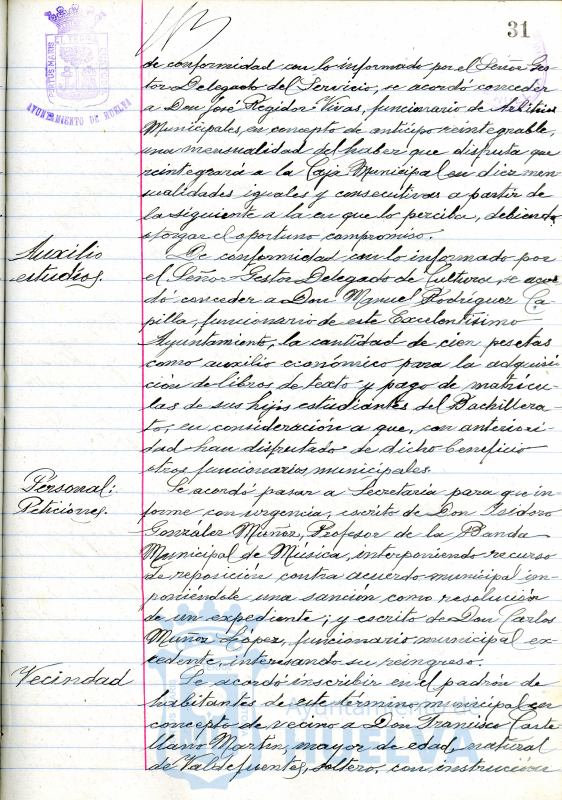 31
PORTUS MARIS ET TERRAE CUSTODIA
AYUNTAMIENTO DE HUELVA
de conformidad con lo informado por el Señor Ges-
tor Delegado del Servicio, se acordó conceder
a Don José Regidor Vivas, funcionario de Arbitrios
Municipales, en concepto de anticipo reintegrable,
una mensualidad del haber que disfruta que
reintegrará a la Caja Municipal en diez men-
sualidades iguales y consecutivas a partir de
la siguiente a la en que lo perciba, debiendo
otorgar el oportuno compromiso.
Auxilio
estudios.
De conformidad con lo informado por
el Señor Gestor Delegado de Cultura, se acor-
dó conceder a Don Manuel Rodríguez Ca-
pilla, funcionario de este Excelentísimo
Ayuntamiento, la cantidad de cien pesetas
como auxilio económico para la adquisi-
ción de libros de texto y pago de matrícu-
las de sus hijos estudiantes del Bachillera-
to, en consideración a que, con anteriori-
dad han disfrutado de dicho beneficio
otros funcionarios municipales.
Personal:
Peticiones.
Se acordó pasar a Secretaría para que in-
forme con urgencia, escrito de Don Isidoro
González Muñoz, Profesor de la Banda
Municipal de Música, interponiendo recurso
de reposición contra acuerdo municipal im-
poniéndole una sanción como resolución
de un expediente; y escrito de Don Carlos
Muñoz López, funcionario municipal ex-
cedente, interesando su reingreso.
Vecindad
Se acordó inscribir en el padrón de
habitantes de este término municipal en
concepto de vecino a Don Francisco Caste-
llano Martín, mayor de edad, natural
de Valdefuentes, soltero, con instrucción
Ayuntamiento de
HUELVA